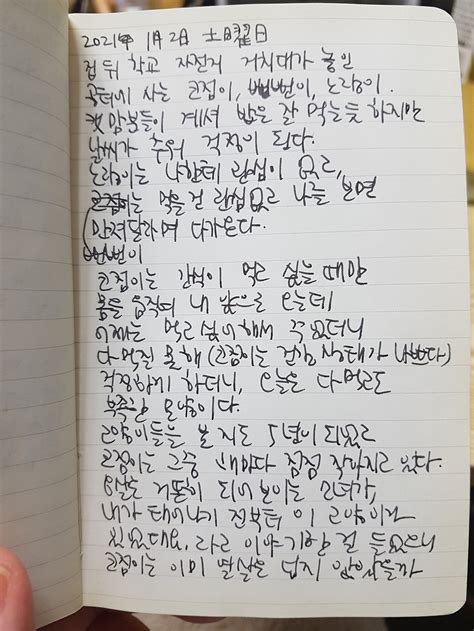 2021年 1月 2日 土曜日
집 뒤 학교 자전거 거치대가 놓인
공터에 사는 코점이, 뻔뻔이, 노랑이.
캣맘분들이 계셔 밥은 잘 먹는듯 하지만
날씨가 추워 걱정이 된다.
노랑이는 나한테 관심이 없고,
코점이는 먹을걸 관심없고 나를 보면
만져달라며 다가온다.
뻔뻔이
코점이는 간식이 먹고 싶을 때만
몸을 움직여 내 앞으로 오는데
어제는 먹고 싶어해서 주었더니
다 먹질 못해 (코점이는 건강상태가 나쁘다)
걱정하게 하더니, 오늘은 다 먹고도
부족한 모양이다.
고양이들을 본 지도 5년이 되었고
코점이는 그중 해마다 점점 작아지고 있다.
8살도 거뜬히 되어 보이는 인터가,
내가 태어나기 전부터 이 고양이가
있었대요, 라고 이야기한 걸 들었으니
코점이는 이미 열살은 넘지 않았을까